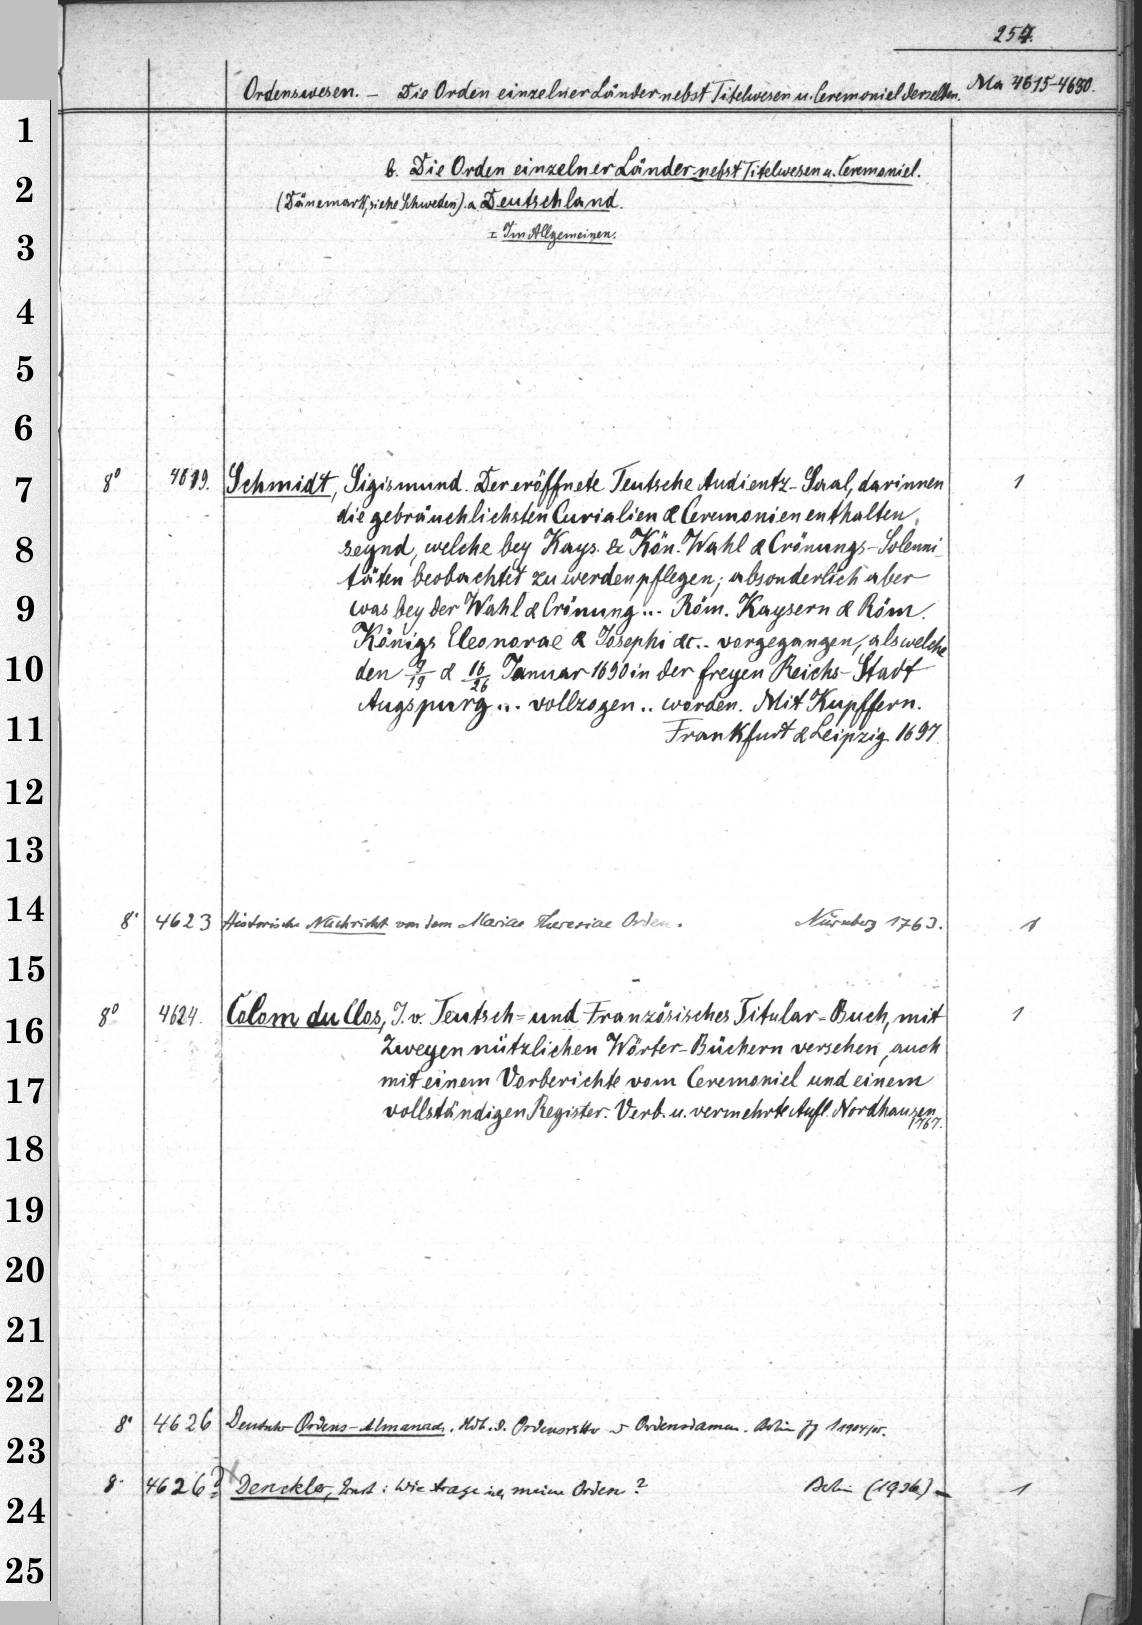 254.
Ordenswesen. – Die Orden einzelner Länder nebst Titelwesen u. Ceremoniel derselben. Ma 4615–4630.
b. Die Orden einzelner Länder nebst Titelwesen u. Ceremoniel.
(Dänemark, siehe Schweden). a. Deutschland.
I Im Allgemeinen.
8° 4619. Schmidt, Sigismund. Der eröffnete Teutsche Audientz-Saal, darinnen 1
die gebräuchlichsten Curialien & Ceremonien enthalten
seynd, welche bey Kays. & Kön. Wahl & Crönungs-Solenni-
täten beobachtet zu werden pflegen; absonderlich aber
was bey der Wahl & Crönung ... Röm. Kaysern & Röm.
Königs Eleonorae & Josephi &c... vorgegangen, als welche
den 9/19 & 16/26 Januar 1690 in der freyen Reichs-Stadt
Augspurg ... vollzogen .. worden. Mit Kupffern.
Frankfurt & Leipzig 1697
8° 4623 Historische Nachricht von dem Mariae Theresiae Orden. Nürnberg 1763. 1
8° 4624. Colom du Clos, I. v. Teutsch- und Französisches Titular-Buch, mit 1
zweyen nützlichen Wörter-Büchern versehen, auch
mit einem Vorberichte vom Ceremoniel und einem
vollständigen Register. Verb. u. vermehrte Aufl. Nordhausen
1767.
8° 4626 Deutscher Ordens-Almanach. Hdb. d. Ordensritter u Ordensdamen. Berlin Jg 1 1904/05.
8° 4626 Denckler, Ernst: Wie trage ich meine Orden? Berlin (1936) 1
1
2
3
4
5
6
7
8
9
10
11
12
13
14
15
16
17
18
19
20
21
22
23
24
25